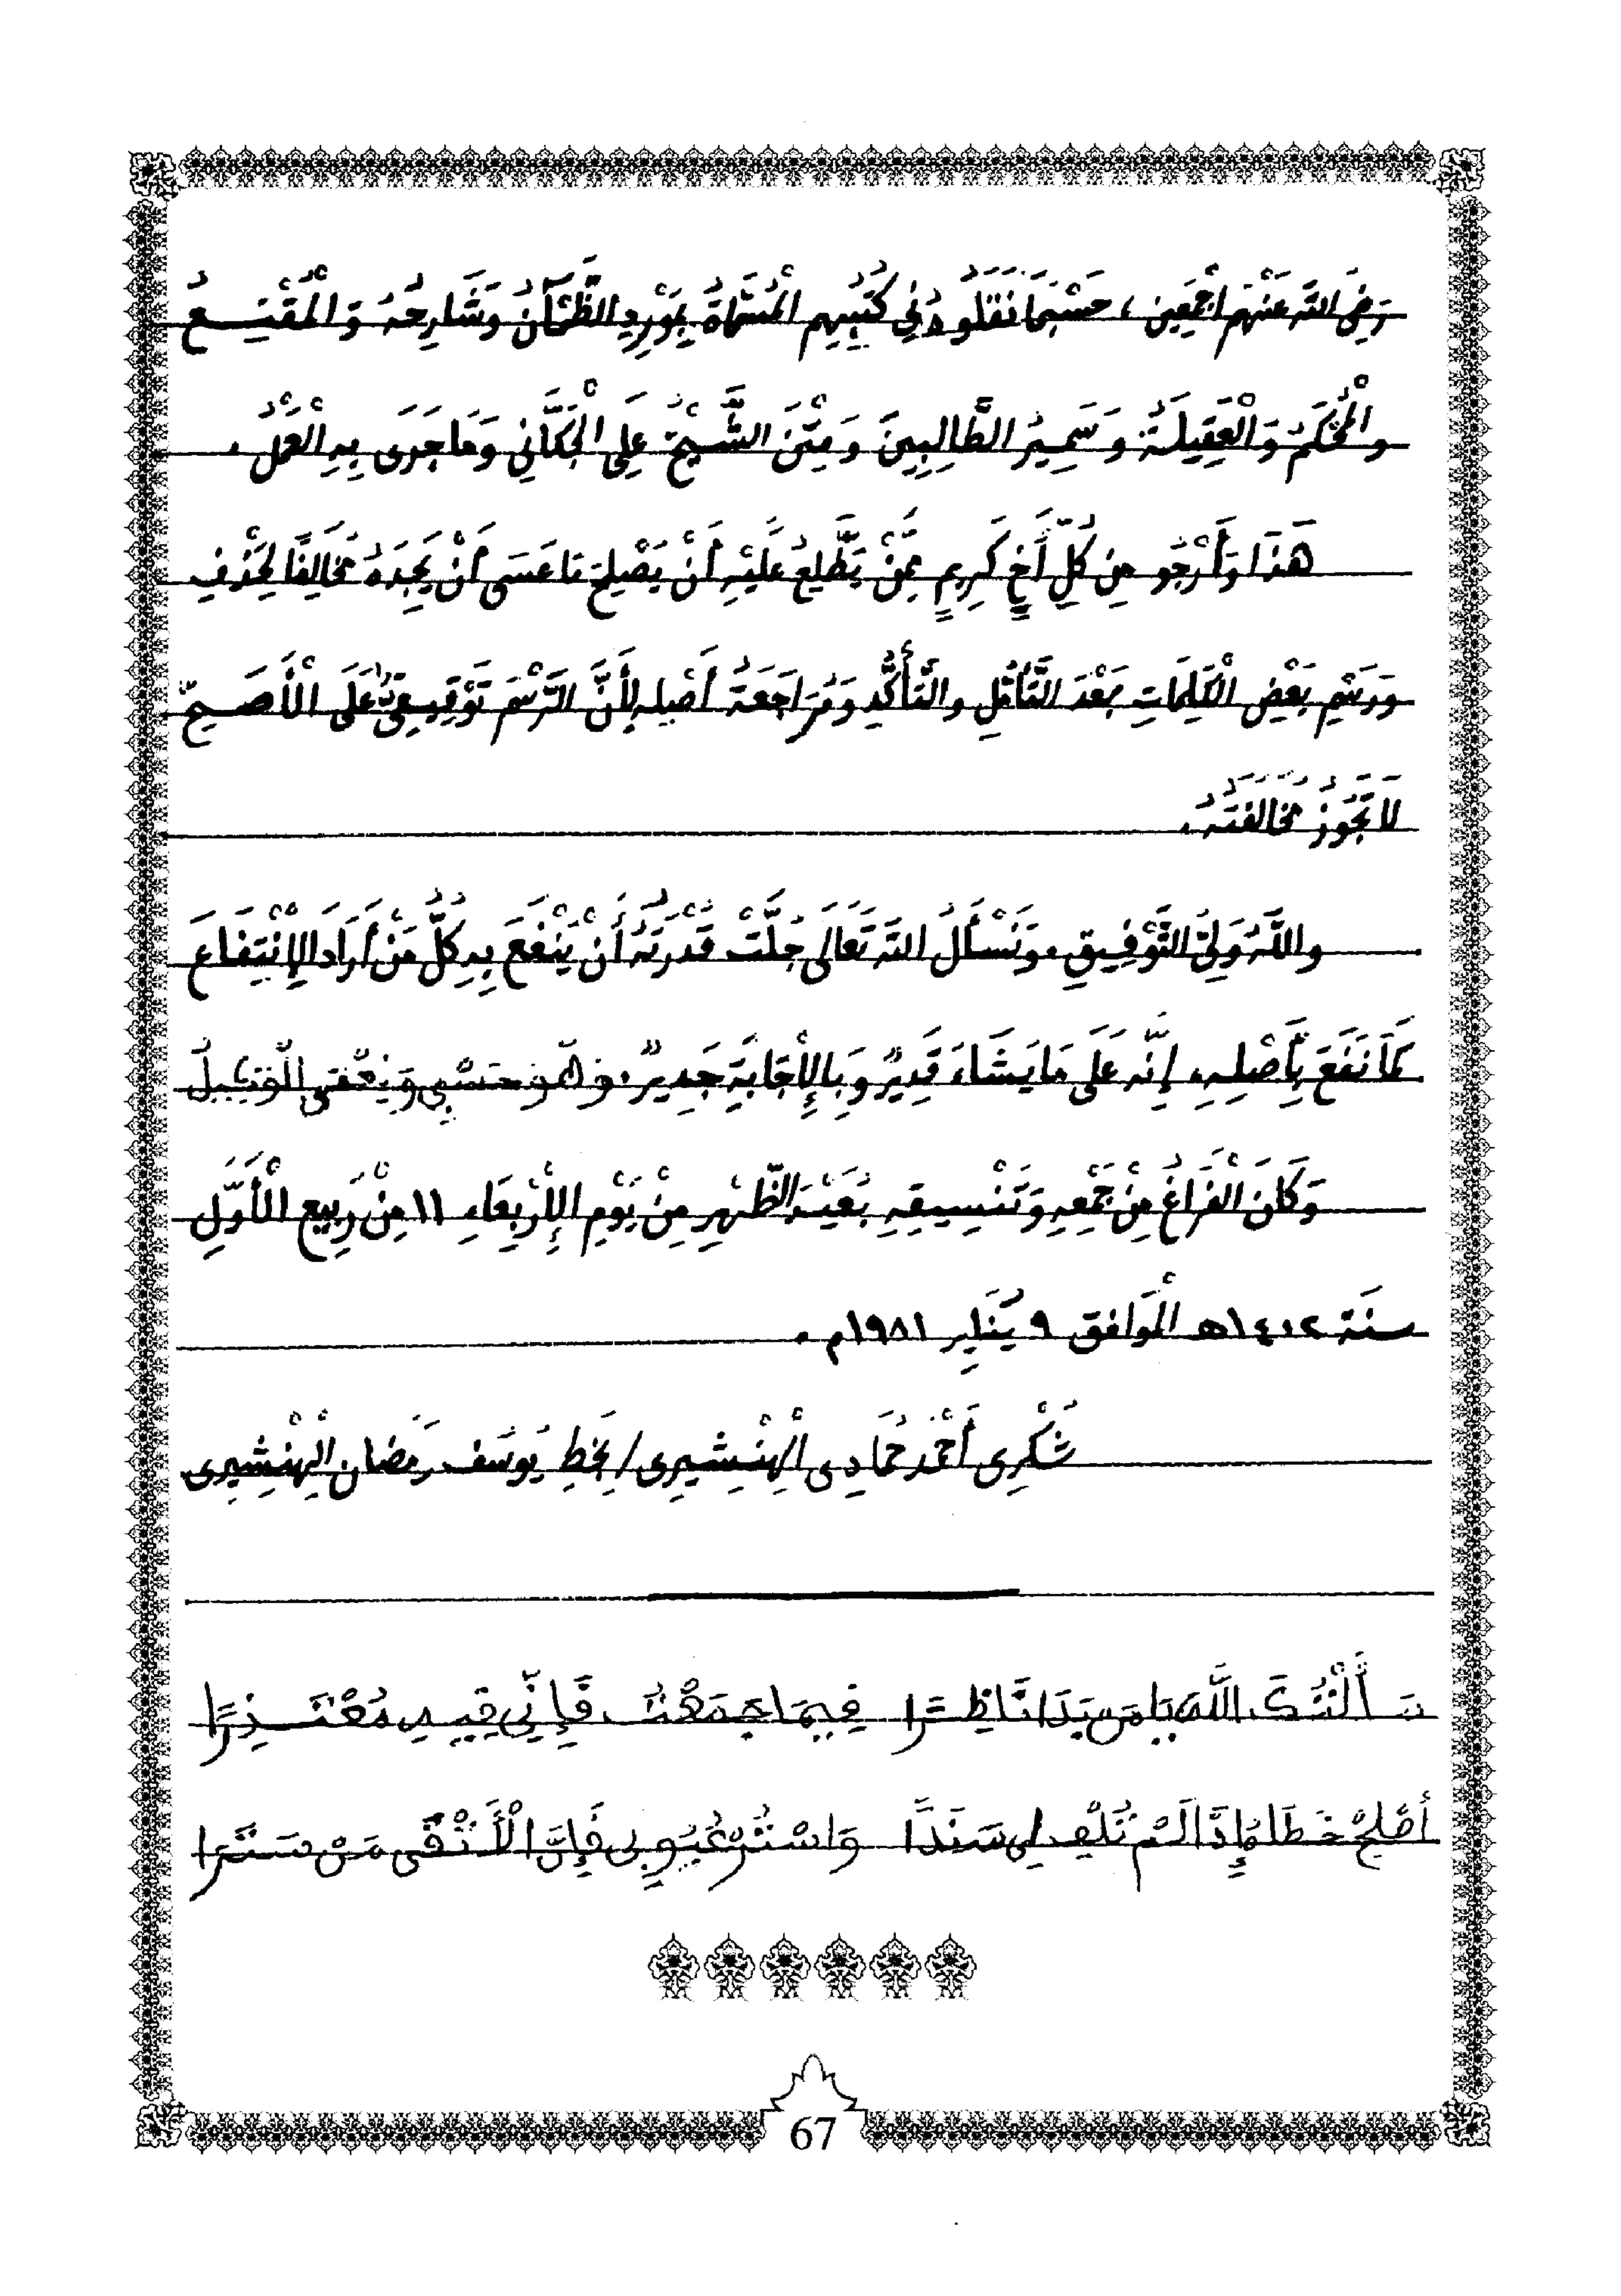 رَضِيَ اللَّه عَنْهُم أَجْمَعِين ، حَسْبَمَا نَقَلُوهُ فِي كُتُبِهِم الْمُسَمَّاةُ بِمَوْرِدِ الظَّمْآنُ وَشَارِحُهُ وَالْمُقْنِعُ
والْمُحْكَمُ وَالْعَقِيلَةُ وَسَمِيرُ الطَّالِبِينَ وَمِتْنَ الشَّيْخُ عَلِى الْجَكَّانِي وَمَا جَرَى بِهِ الْعَمَلُ .
هَذَا وَأَرْجُو مِن كُلِّ أَخٍ كَرِيمٍ مِمَّنْ يَطَّلِعُ عَلَيْهِ أَنْ يَصْلِحَ مَا عَسَى أَنْ يَجِدَهُ مُخَالِفًا لِحَذْفِ
وَرَسْمِ بَعْضِ الْكَلِمَاتِ بَعْدَ التَّأَمُّلِ والتَّأَكُّدِ وَمُرَاجَعَةُ أَصْلِهِ لِأَنَّ الرَّسْمَ تَوْقِيفِىٌّ عَلَى الْأَصَحِّ
لَا تَجُوزُ مُخَالَفَتَهُ .
واللَّهُ وَلِيُّ التَّوْفِيقِ . وَنَسْأَلُ اللَّه تَعَالَى جَلَّتْ قُدْرَتَهُ أَنْ يَنْفَعَ بِهِ كُلُّ مَنْ أَرَادَ الإِنْتِفَاعَ
كَمَا نَفَعَ بِأَصْلِهِ . إِنَّه عَلَى مَا يَشَاءَ قَدِيرٌ وَبِالإِجَابَةِ جَدِيرٌ . وَهُوَ حَسْبِي وَنِعْمَ الْوَكِيلُ
وَكَانَ الْفَرَاغُ مِنْ جَمْعِهِ وَتَنْسِيقِهِ بُعَيْدَ الظُّهْرِ مِنْ يَوْمِ الإِرْبِعَاءِ ١١ مِنْ رَبِيع الْأَوَّلِ
سنَة ١٤٠٢هـ الْمُوَافق ٩ يَنَايِر ١٩٨١م .
شُكْرِى أَحْمَد حُمَادِى الْهِنْشِيرِى / بِخَطِ يُوسُف رَمَضان الْهِنْشِيرِى
سَأَلْتُكَ اللَّهَ يَا مَن بَدَا نَاظِرًا فِيمَا جَمَعْتُ فَإِنِّي فِيهِ مُعْتَذِرًا
أصْلِحْ خَطَاءً إِذَا لَمْ تُلْفِ لِي سَنَدًا وَاسْتُرْ عُيُوبِى فَإِنَّ الْأَتْقَى مَنْ سَتَرَا
67